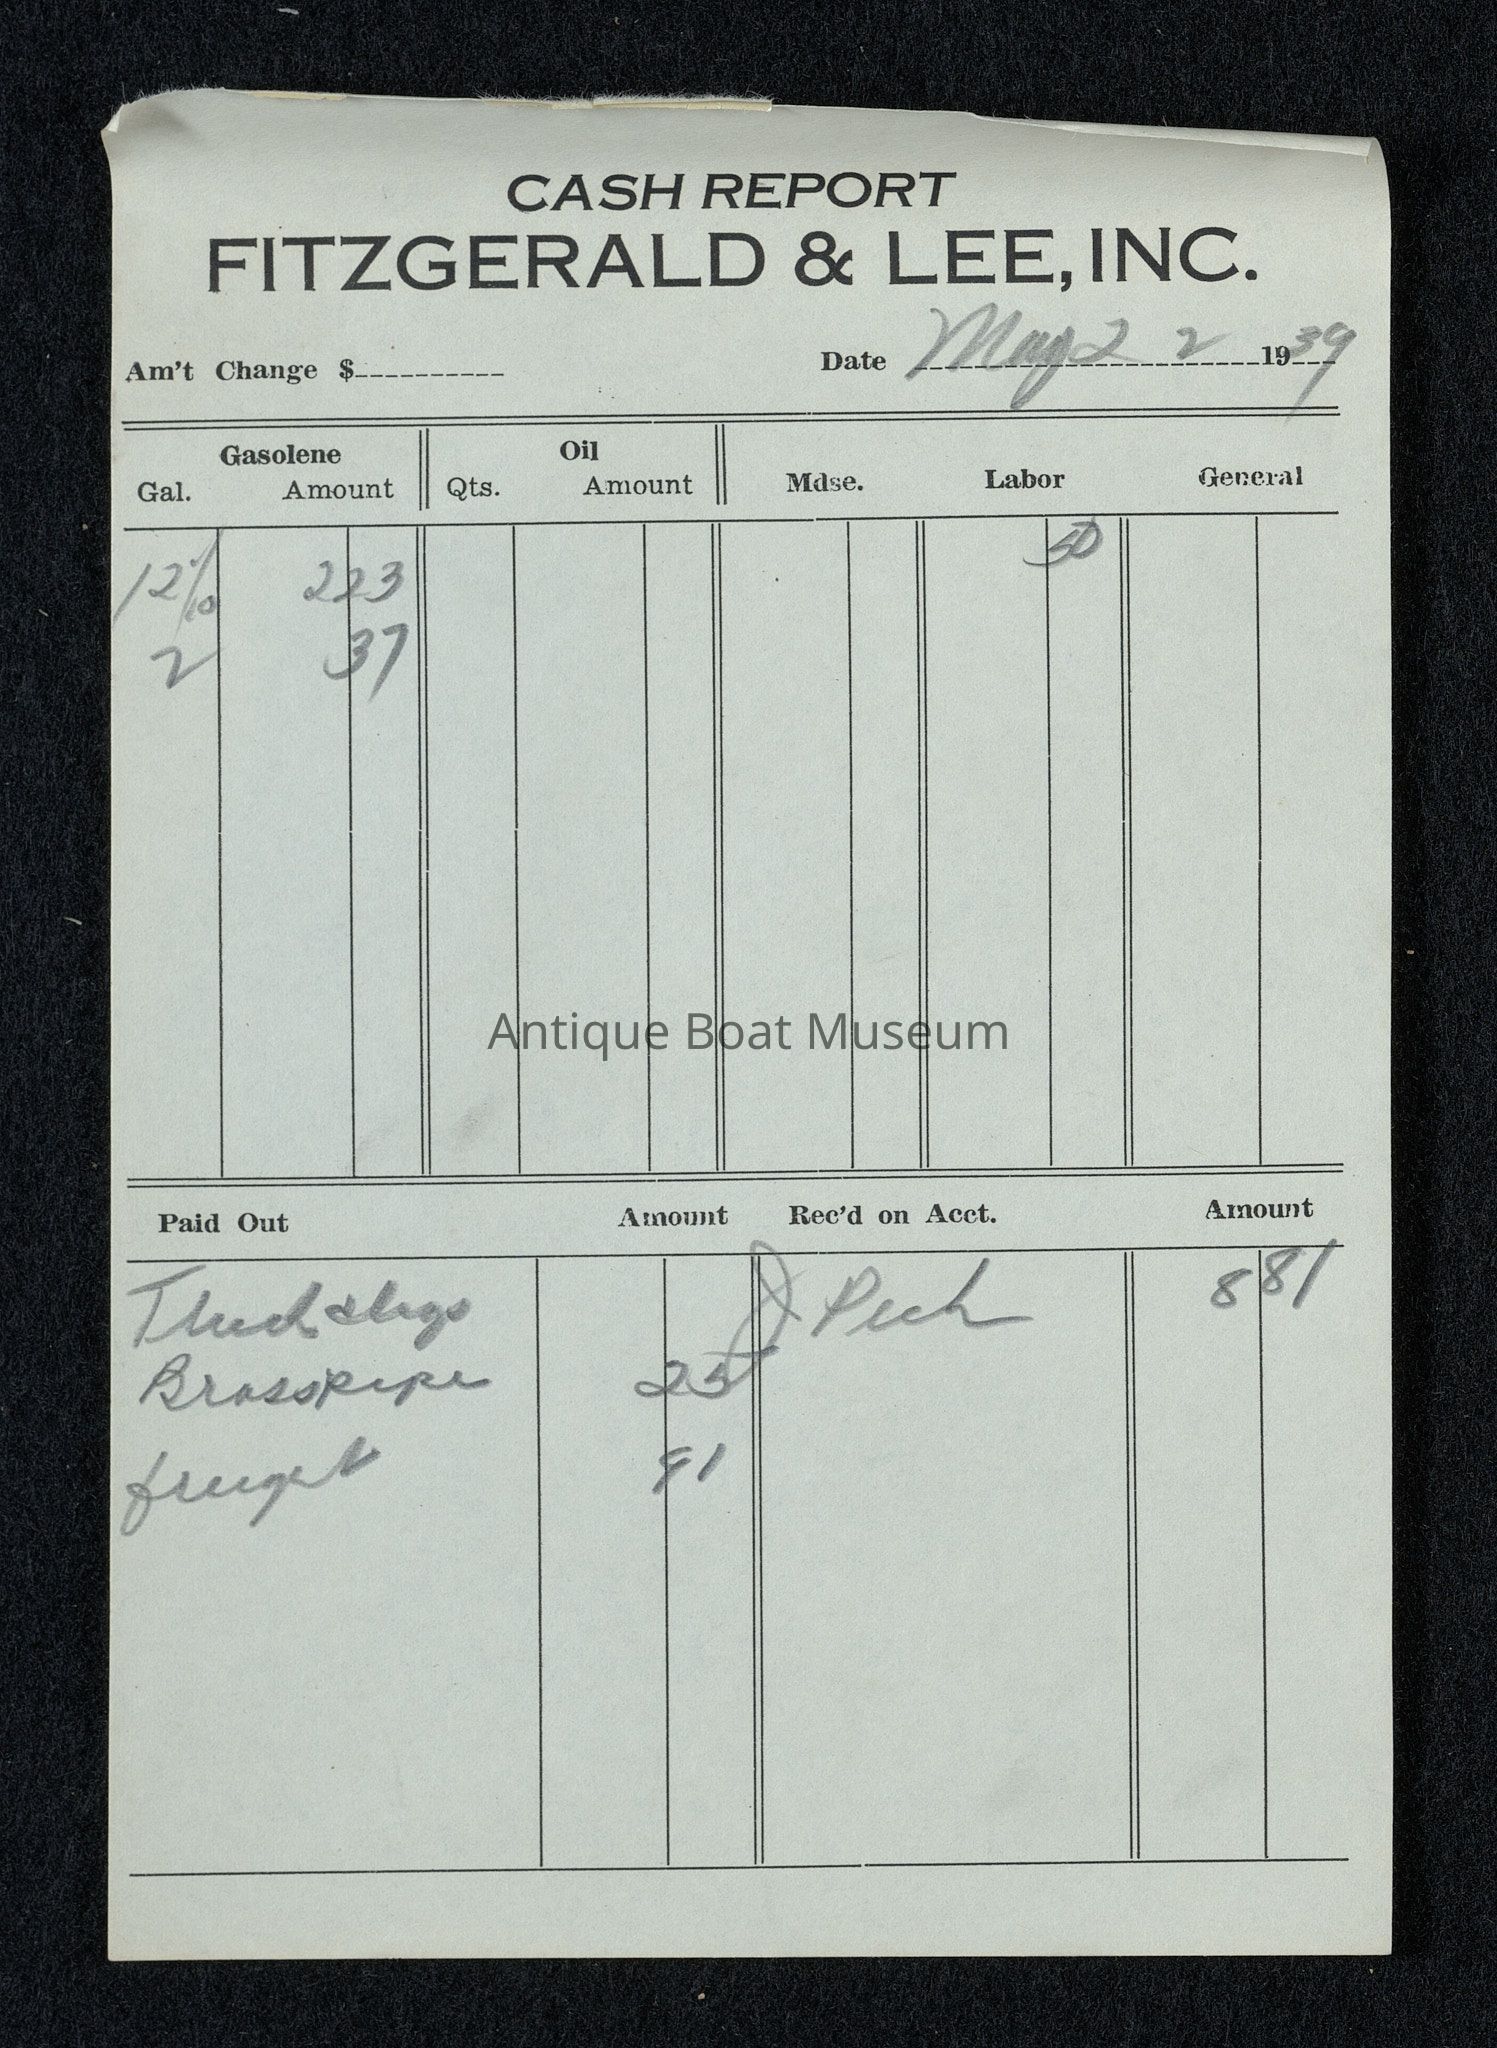 CASH REPORT
FITZGERALD & LEE, INC.
Am't Change $ Date May 22 1939
Gasolene Oil
Gal. Amount Qts. Amount Mdse. Labor General
50
12 1/10 223
2 37
Antique Boat Museum
Paid Out Amount Rec'd on Acct. Amount
J Peck 8 81
Brass pipe 25
freight 91